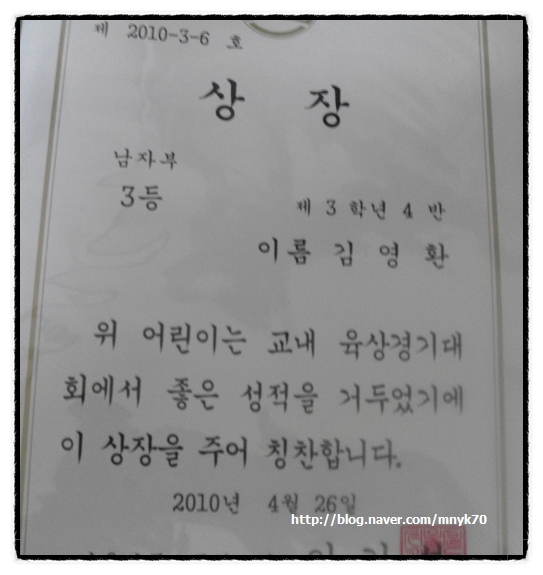 제 2010-3-6 호
상 장
남자부
3등
제 3 학년 4 반
이름 김 영 환
위 어린이는 교내 육상경기대
회에서 좋은 성적을 거두었기에
이 상장을 주어 칭찬합니다.
2010년 4월 26일
http://blog.naver.com/mnyk70